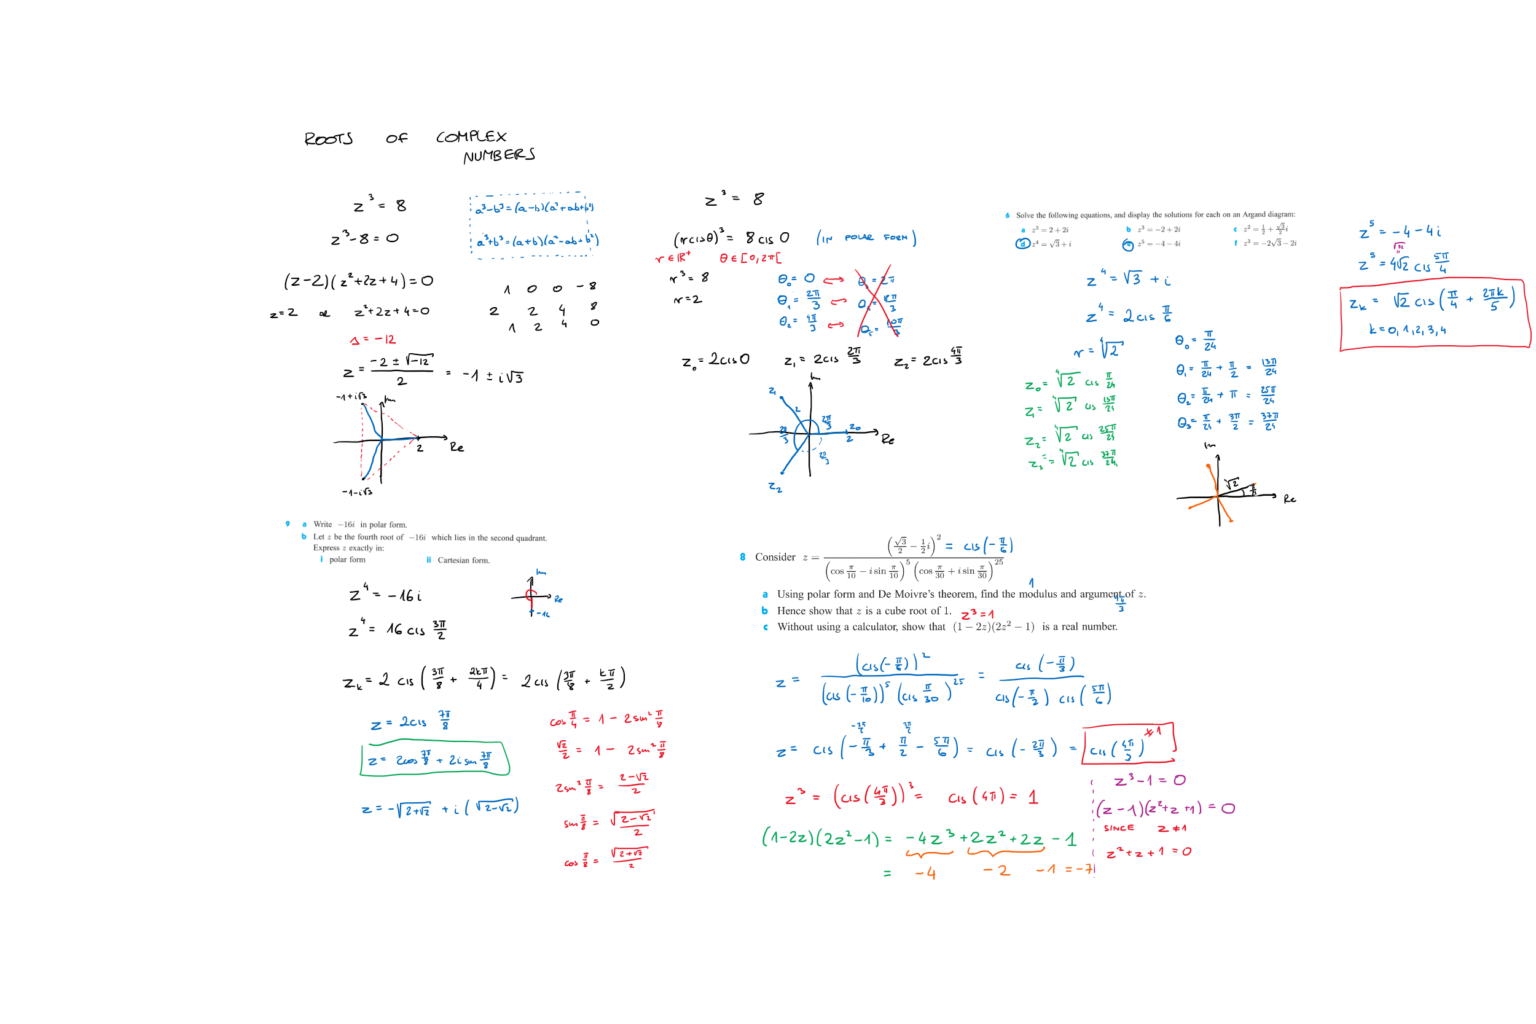 ROOTS OF COMPLEX
NUMBERS
z³ = 8
z³-8 = 0
(z-2)(z²+2z+4) = 0
z=2 or z²+2z+4=0
Δ = -12
z = (-2 ± √-12)/2 = -1 ± i√3
a³-b³=(a-b)(a²+ab+b²)
a³+b³=(a+b)(a²-ab+b²)
1 0 0 -8
2 2 4 8
1 2 4 0
-1+i√3
Im
2
Re
-1-i√3
z³ = 8
(r cis θ)³ = 8 cis 0 (IN POLAR FORM)
r ∈ ℝ⁺ θ ∈ [0, 2π[
r³ = 8
r = 2
θ₀ = 0 ↔ θ₀ = 2π
θ₁ = 2π/3 ↔
θ₂ = 4π/3 ↔
z₀ = 2cis0 z₁ = 2cis 2π/3 z₂ = 2cis 4π/3
Im
z₁
2
2π/3
z₀
2
Re
z₂
6 Solve the following equations, and display the solutions for each on an Argand diagram:
a z³ = 2 + 2i b z³ = −2 + 2i c z² = 1/2 + √3/2 i
d z⁴ = √3 + i e z⁵ = −4 − 4i f z³ = −2√3 − 2i
z⁴ = √3 + i
z⁴ = 2 cis π/6
r = ⁴√2
θ₀ = π/24
θ₁ = π/24 + π/2 = 13π/24
θ₂ = π/24 + π = 25π/24
θ₃ = π/24 + 3π/2 = 37π/24
z₀ = ⁴√2 cis π/24
z₁ = ⁴√2 cis 13π/24
z₂ = ⁴√2 cis 25π/24
z₃ = ⁴√2 cis 37π/24
Im
⁴√2
Re
z⁵ = -4-4i
z⁵ = 4√2 cis 5π/4
z_k = √2 cis (π/4 + 2πk/5)
k = 0, 1, 2, 3, 4
9 a Write −16i in polar form.
b Let z be the fourth root of −16i which lies in the second quadrant.
Express z exactly in:
i polar form ii Cartesian form.
z⁴ = -16i
z⁴ = 16 cis 3π/2
Im
Re
-16
z_k = 2 cis (3π/8 + 2kπ/4) = 2cis (3π/8 + kπ/2)
z = 2cis 7π/8
z = 2cos 7π/8 + 2i sin 7π/8
z = -√(2+√2) + i (√(2-√2))
cos π/4 = 1 - 2sin² π/8
√2/2 = 1 - 2sin² π/8
2sin² π/8 = (2-√2)/2
sin π/8 = √(2-√2)/2
cos π/8 = √(2+√2)/2
8 Consider z = (√3/2 − 1/2 i)² / ((cos π/10 − i sin π/10)⁵ (cos π/30 + i sin π/30)²⁵)
= cis(-π/6)
a Using polar form and De Moivre's theorem, find the modulus and argument of z.
1
4π/3
b Hence show that z is a cube root of 1. z³=1
c Without using a calculator, show that (1 − 2z)(2z² − 1) is a real number.
z = (cis(-π/6))² / ((cis(-π/10))⁵ (cis π/30)²⁵) = cis(-π/3) / (cis(-π/2) cis(5π/6))
z = cis (-π/3 + π/2 - 5π/6) = cis (-2π/3) = cis (4π/3) ≠1
z³ = (cis(4π/3))³ = cis (4π) = 1
(1-2z)(2z²-1) = -4z³ + 2z² + 2z - 1
= -4 -2 -1 = -7
z³-1 = 0
(z-1)(z²+z+1) = 0
SINCE z ≠ 1
z²+z+1 = 0